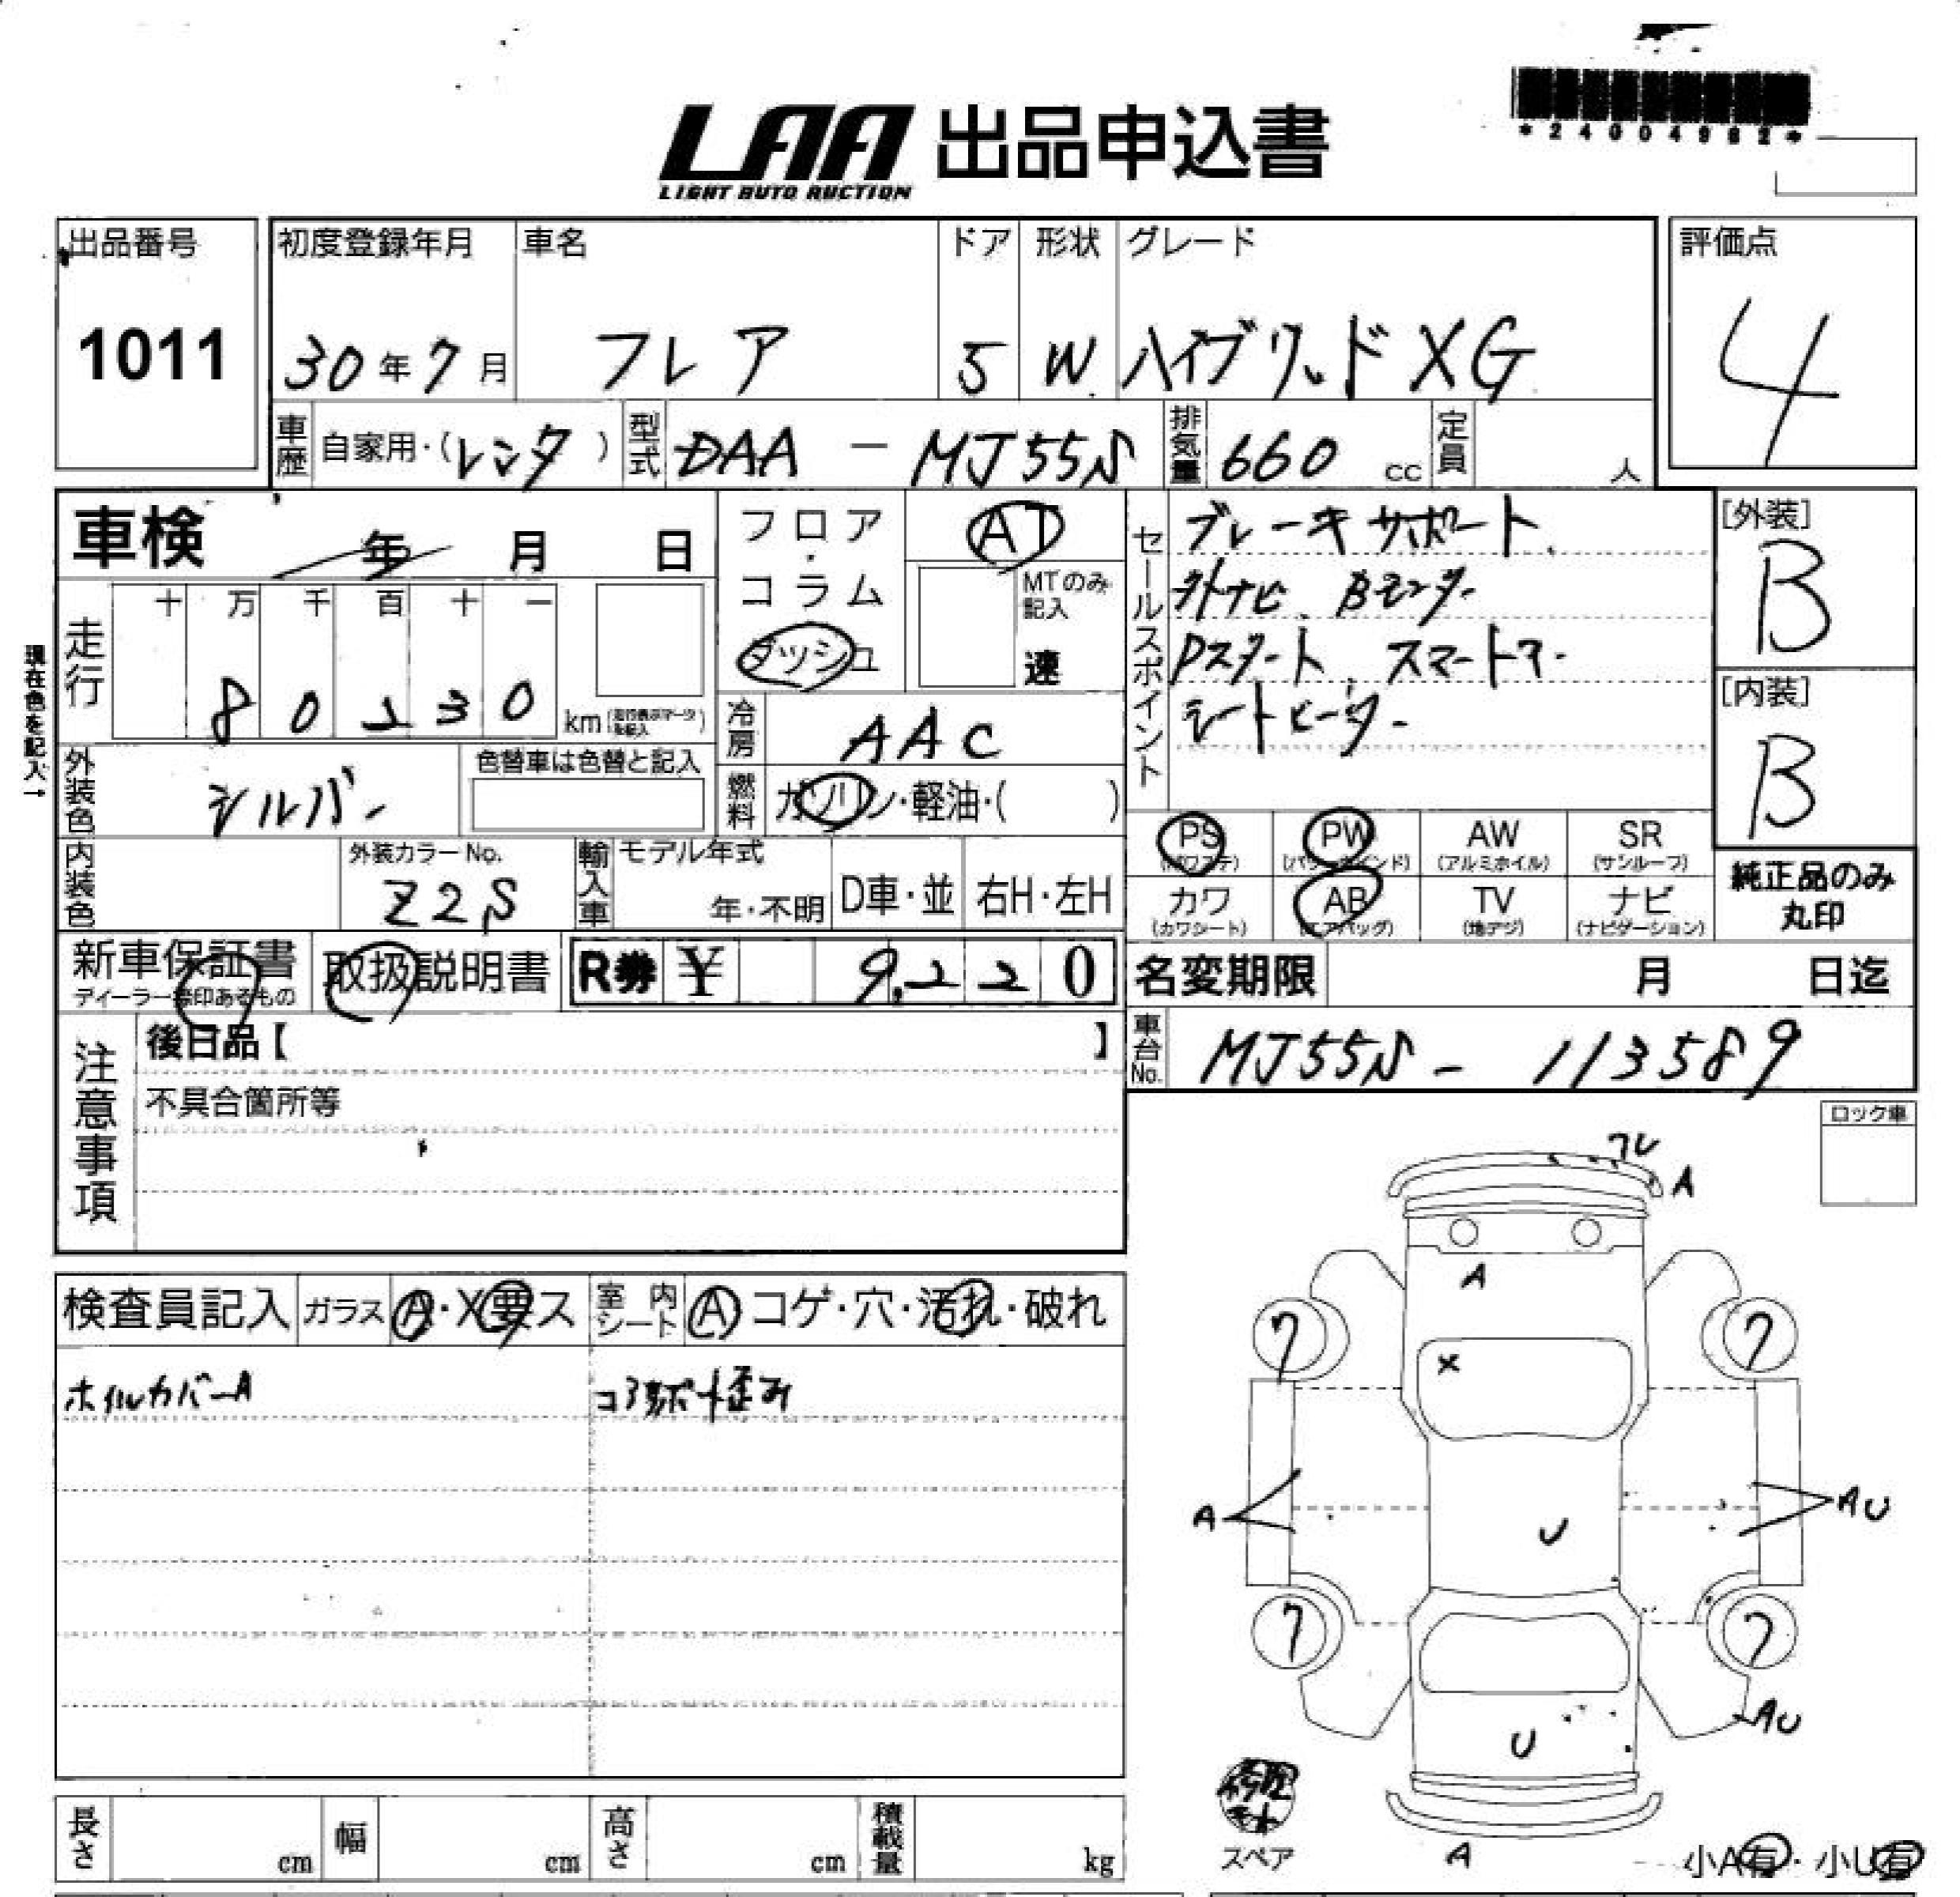 *24004982*
LAA 出品申込書
LIGHT AUTO AUCTION
出品番号
1011
初度登録年月
30年7月
車名
フレア
ドア
5
形状
W
グレード
ハイブリッド XG
評価点
4
車歴
自家用・(レンタ)
型式
DAA - MJ55S
排気量
660 cc
定員
人
車検 年 月 日
フロア・コラム
ダッシュ
AT
MTのみ記入
速
セールスポイント
ブレーキサポート
外ナビ、Bモニター
Pスタート、スマートキー
シートヒーター
[外装]
B
[内装]
B
現在色を記入→
走行
十 万 千 百 十 一
80230 km
冷房
AAC
外装色
シルバー
色替車は色替と記入
燃料
ガソリン・軽油・( )
内装色
外装カラーNo.
Z2S
輸入車
モデル年式
年・不明
D車・並
右H・左H
PS
(パワステ)
PW
(パワーウインド)
AW
(アルミホイル)
SR
(サンルーフ)
カワ
(カワシート)
AB
(エアバッグ)
TV
(地デジ)
ナビ
(ナビゲーション)
純正品のみ
丸印
新車保証書
取扱説明書
R券 ¥ 9,220
名変期限 月 日迄
車台No.
MJ55S - 113589
注意事項
後日品【 】
不具合箇所等
ロック車
フレ
A
A
7 7
×
A
AU
U
7 7
AU
U
A
検査員記入
ガラス
A・X要ス
室内シート
A コゲ・穴・汚れ・破れ
ホイルカバーA
コアサポート歪み
修理キット
スペア
小A有・小U有
長さ cm
幅 cm
高さ cm
積載量 kg